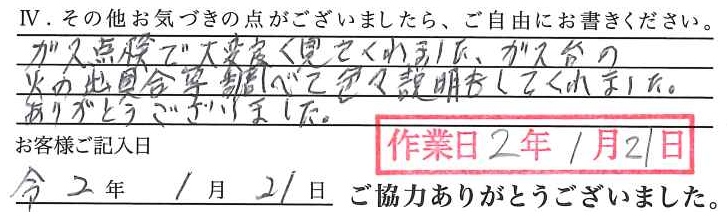 Ⅳ．その他お気づきの点がございましたら、ご自由にお書きください。
ガス点検で大変良く見てくれました、ガス台の
火の出具合等調べて色々説明をしてくれました。
ありがとうございました。
お客様ご記入日
作業日 2年 1月21日
令 2 年 1 月 21 日 ご協力ありがとうございました。